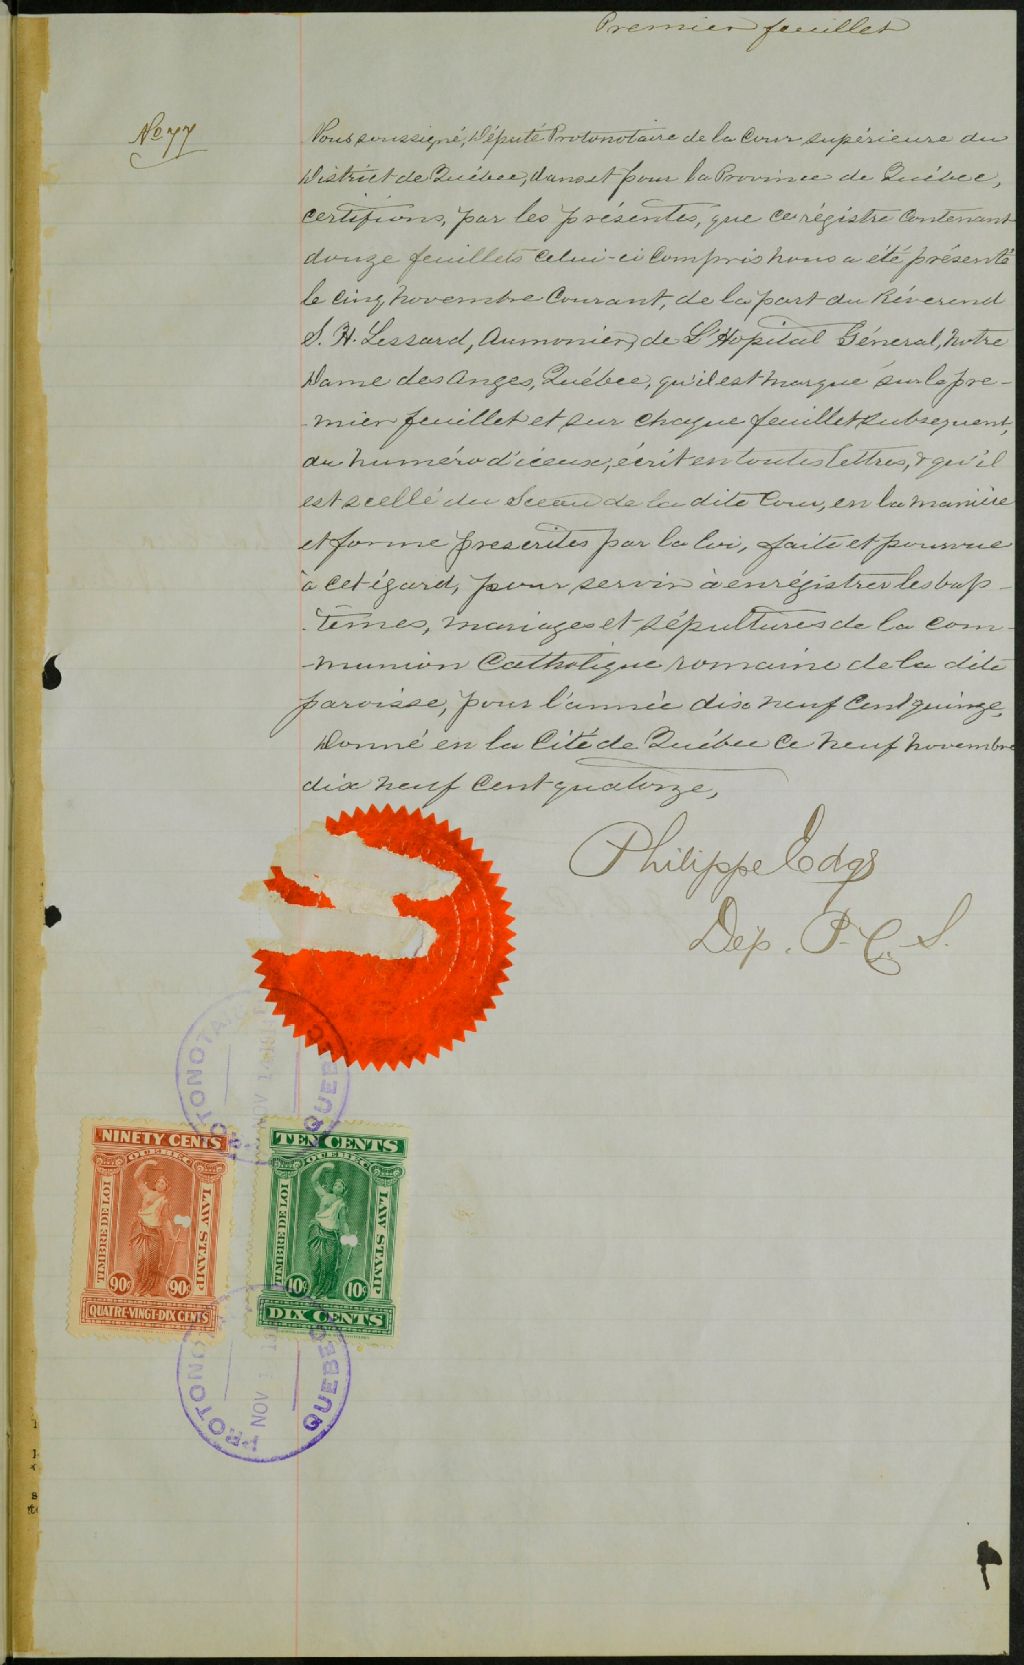 Premier feuillet
No 77
Nous soussigné, Député Protonotaire de la Cour supérieure du
District de Québec, dans et pour la Province de Québec,
certifions, par les présentes, que ce régistre contenant
douze feuillets celui-ci compris nous a été présenté
le cinq novembre courant, de la part du Révérend
S. H. Lessard, Aumonier, de L'Hopital Général, Notre
Dame des Anges, Québec, qu'il est marqué sur le pre-
-mier feuillet et sur chaque feuillet subsequent,
du numéro d'iceux, écrit en toutes lettres, & qu'il
est scellé du Sceau de la dite Cour, en la manière
et forme prescrites par la loi, faite et pourvue
à cet égard, pour servir à enrégistrer les bap-
-têmes, mariages et sépultures de la com-
-munion Catholique romaine de la dite
paroisse, pour l'année dix neuf cent quinze,
Donné en la Cité de Québec ce neuf novembre
dix neuf cent quatorze,
Philippe Edge
Dep. P. C. S.
PROTONOTAIRE QUEBEC
NOV 14 191
NINETY CENTS
QUEBEC
TIMBRE DE LOI
LAW STAMP
90c 90c
QUATRE-VINGT-DIX CENTS
TEN CENTS
QUEBEC
TIMBRE DE LOI
LAW STAMP
10c 10c
DIX CENTS
PROTONOT QUEBEC
NOV 1 19